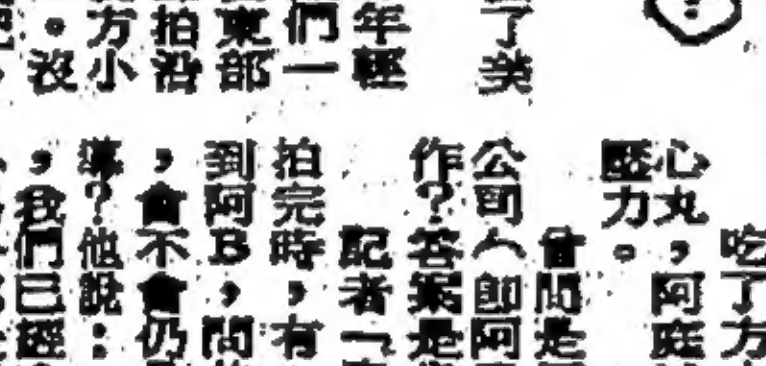 了美
年輕
們一
東部
拍沿
方小
。沒
吃了方
心丸，阿庭
壓力。
曾問是
公司（即阿
作？答案是
記者一
拍完時，有
到阿B，問
，會不會仍
導？他說：
，我們已經